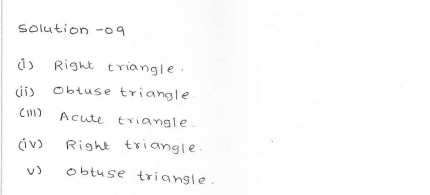 Solution-09
(i) Right triangle.
(ii) Obtuse triangle.
(iii) Acute triangle.
(iv) Right triangle.
v) obtuse triangle.